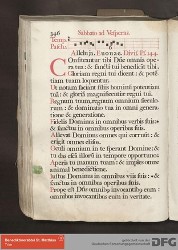 346 Sabbato ad Vesperas.
Alleluja. Euouae. Divis. Ps. 144.
Confiteantur tibi Dñe omnia opera tua: & sancti tui benedicant tibi.
Gloriam regni tui dicent: & potentiam tuam loquentur.
Ut notam faciant filiis hominum potentiam tuā: & gloriā magnificentiæ regni tui.
Regnum tuum, regnum omnium sæculorum: & dominatio tua in omni generatione & generationē.
Fidelis Dominus in omnibus verbis suis: & sanctus in omnibus operibus suis.
Allevat Dominus omnes qui corruunt: & erigit omnes elisos.
Oculi omnium in te sperant Domine: & tu das escā illorū in tempore opportuno.
Aperis tu manum tuam: & imples omne animal benedictione.
Justus Dominus in omnibus viis suis: & sanctus in omnibus operibus suis.
Prope est Dñs omnibus invocantibus eum: omnibus invocantibus eum in veritate.
DFG